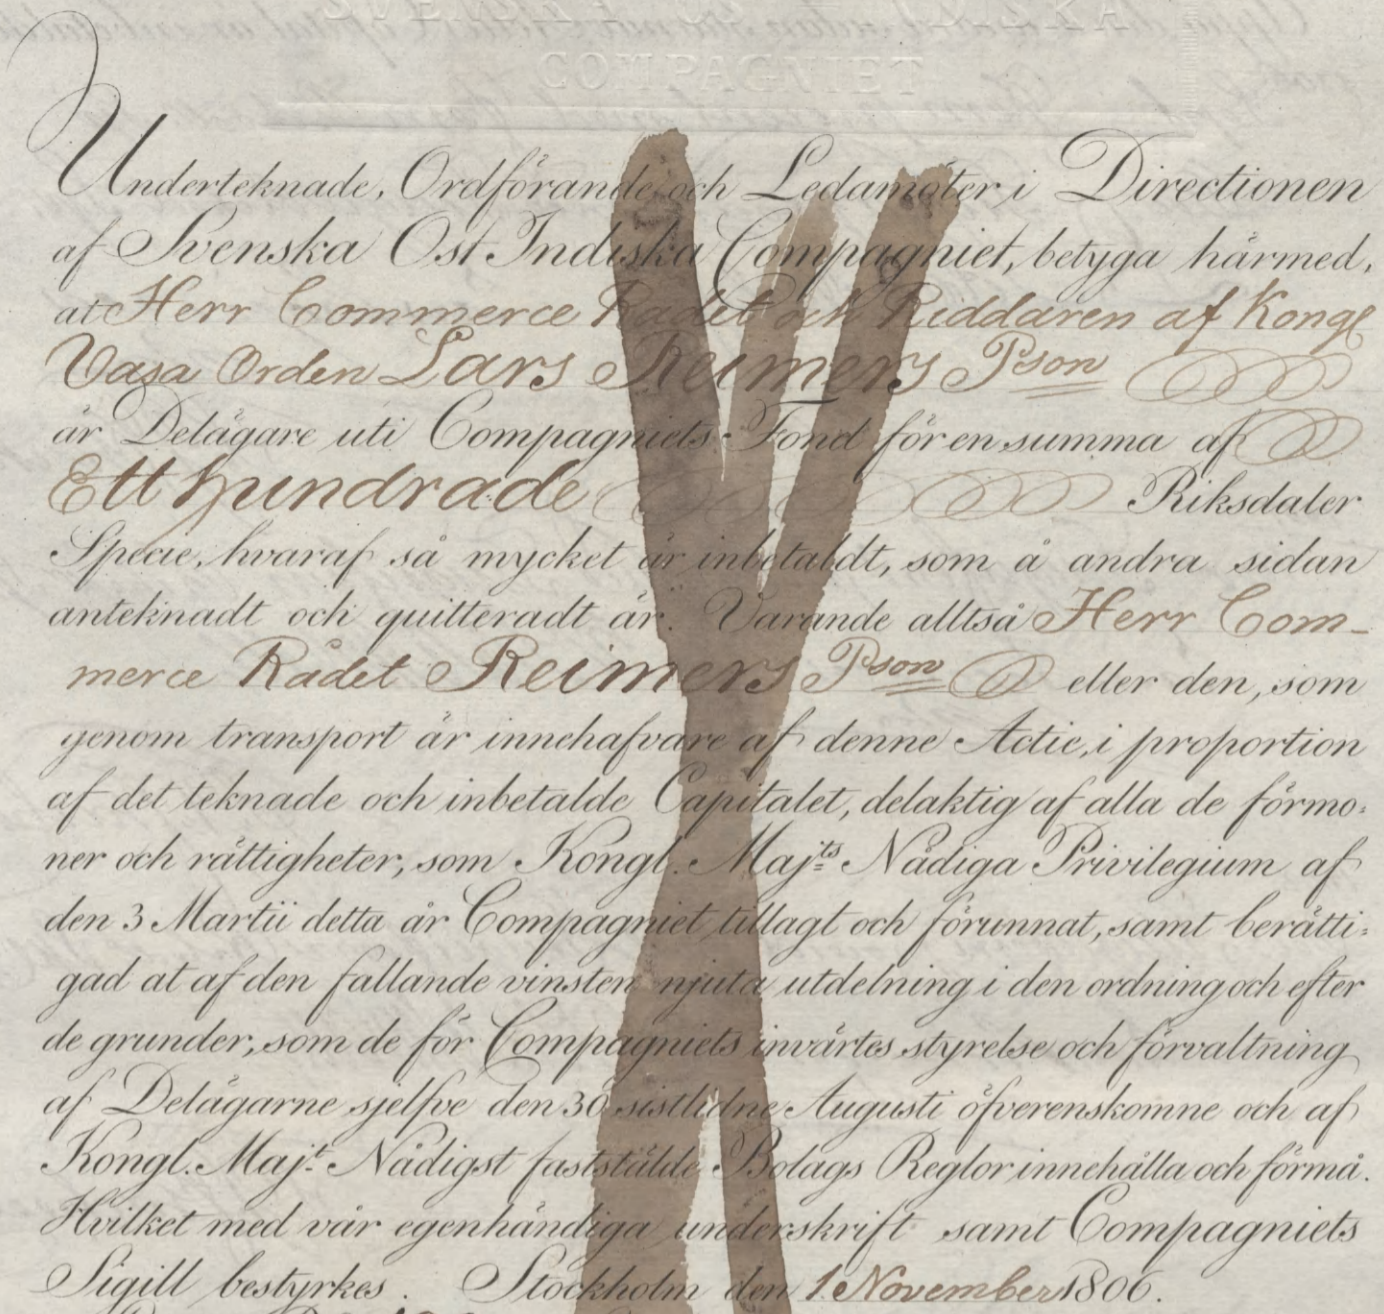 COMPAGNIET
Underteknade, Ordförande och Ledamöter i Directionen
af Svenska Ost Indiska Compagniet, betyga härmed,
at Herr Commerce Rådet och Riddaren af Kongl
Vasa Orden Lars Reimers Pson
är Delägare uti Compagniets Fond för en summa af
Ett hundrade Riksdaler
Specie, hvaraf så mycket är inbetaldt, som å andra sidan
anteknadt och quitteradt är. Varande alltså Herr Com-
merce Rådet Reimers Pson eller den, som
genom transport är innehafvare af denne Actie, i proportion
af det teknade och inbetalde Capitalet, delaktig af alla de förmo:
ner och rättigheter, som Kongl. Majts Nådiga Privilegium af
den 3 Martii detta år Compagniet tillagt och förunnat, samt berätti:
gad at af den fallande vinsten njuta utdelning i den ordning och efter
de grunder, som de för Compagniets invärtes styrelse och förvaltning
af Delägarne sjelfve den 30 sistlidne Augusti öfverenskomne och af
Kongl. Majt. Nådigst faststälde Bolags Reglor innehålla och förmå.
Hvilket med vår egenhändiga underskrift samt Compagniets
Sigill bestyrkes. Stockholm den 1 November 1806.